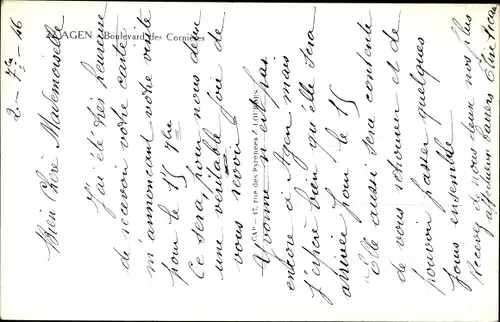 AGEN - Boulevard des Cornières
2 - 7re - 46
Bien Chère Mademoiselle
J'ai été très heureuse
de recevoir votre carte
m'annonçant votre visite
pour le 15 7re
Ce sera pour nous deux
une véritable joie de
vous revoir
Yvonne n'est pas
encore à Agen mais
j'espère bien qu'elle sera
arrivée pour le 15
Elle aussi sera contente
de vous retrouver et de
pouvoir passer quelques
jours ensemble
Recevez de nous deux nos plus
affectueux baisers
CAP - 17, rue des Pyrénées - LOURDES